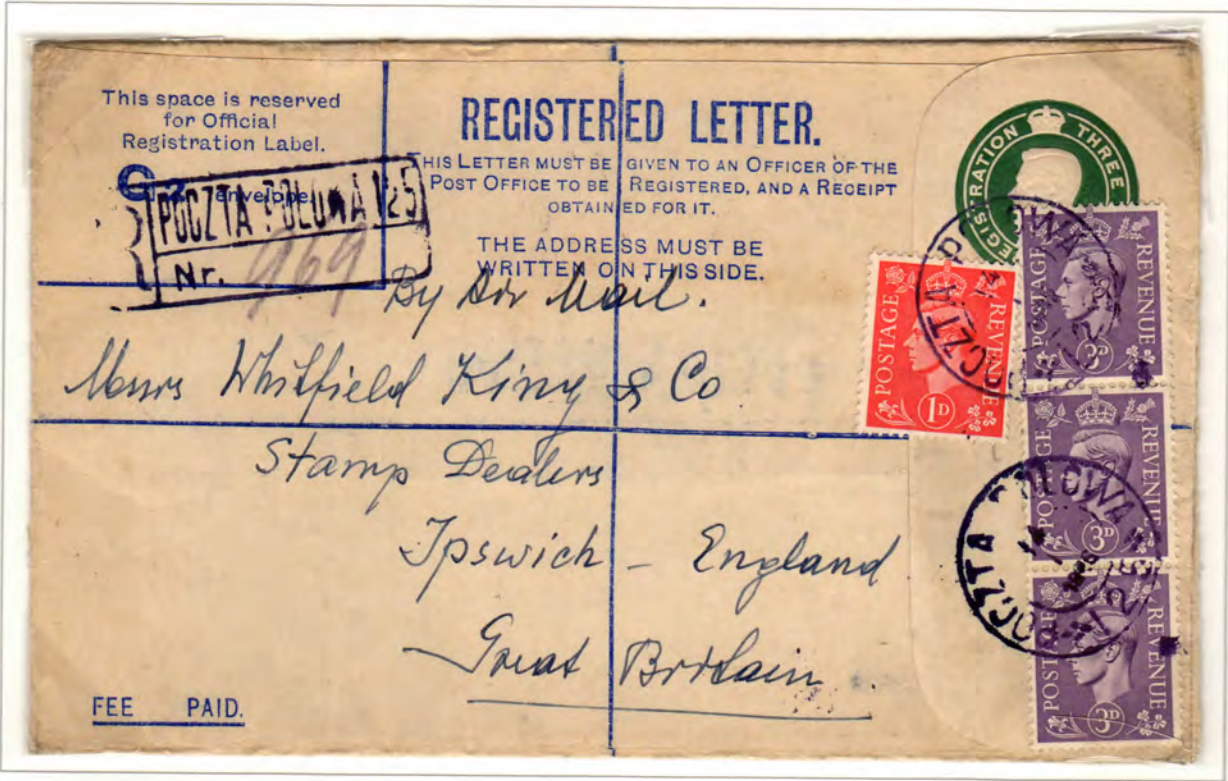 This space is reserved
for Official
Registration Label.
G. envelope.
POCZTA POLOWA 125
Nr. 969
REGISTERED LETTER.
THIS LETTER MUST BE GIVEN TO AN OFFICER OF THE
POST OFFICE TO BE REGISTERED, AND A RECEIPT
OBTAINED FOR IT.
THE ADDRESS MUST BE
WRITTEN ON THIS SIDE.
REGISTRATION THREE
By Air Mail.
Messrs Whitfield King & Co
Stamp Dealers
Ipswich - England
Great Britain
FEE PAID.
POSTAGE REVENUE
1D
POSTAGE REVENUE
3D
POSTAGE REVENUE
3D
POSTAGE REVENUE
3D
POCZTA POLOWA
POCZTA POLOWA 125